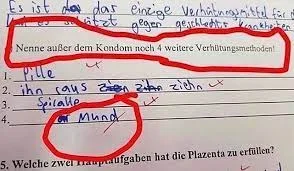 Es ist das einzige Verhütungsmittel für
schützt gegen geschlechts krankheiten
Nenne außer dem Kondom noch 4 weitere Verhütungsmethoden!
1. Pille
2. ihn raus ziehn
3. Spiralle
4. Mund
5. Welche zwei Hauptaufgaben hat die Plazenta zu erfüllen?